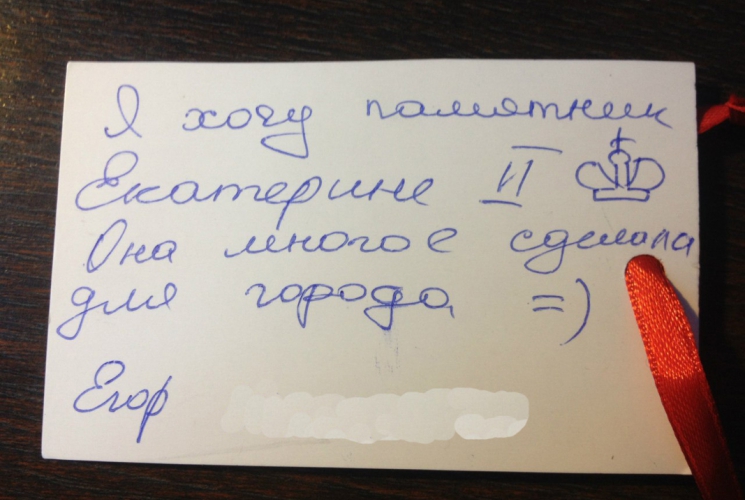 Я хочу памятник
Екатерине II
Она многое сделала
для города =)
Егор